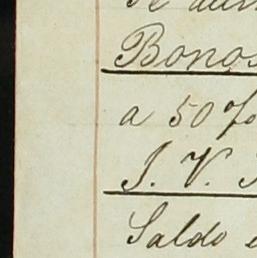 Bonos
a 50 %
J. V.
Saldo